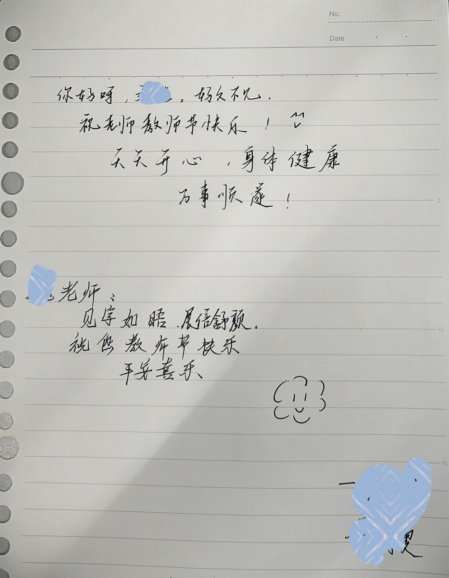 No.
Date
你好呀, 。好久不见.
祝老师教师节快乐!
天天开心,身体健康
万事顺遂!
老师:
见字如晤.展信舒颜.
祝您教师节快乐
平安喜乐、